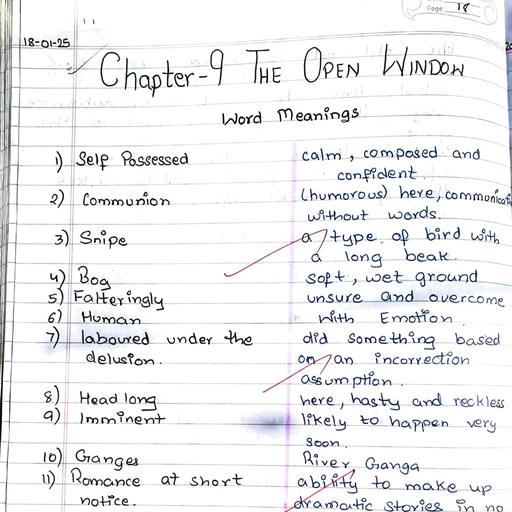 Page 18
18-01-25
Chapter-9 THE OPEN WINDOW
Word Meanings
1) Self Possessed calm, composed and
confident.
2) Communion (humorous) here, communicati
without words.
3) Snipe a type of bird with
a long beak.
4) Bog soft, wet ground
5) Falteringly unsure and overcome
6) Human With Emotion
7) laboured under the did something based
delusion. on an incorrection
assumption.
8) Head long here, hasty and reckless
9) Imminent likely to happen very
soon.
10) Ganges River Ganga
11) Romance at short ability to make up
notice. dramatic stories in no